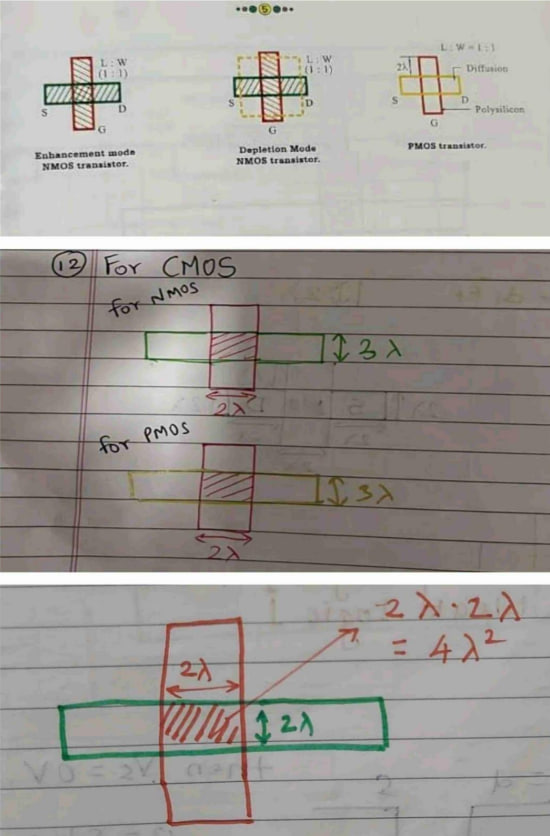 5
L : W
(1 : 1)
S
D
G
Enhancement mode
NMOS transistor.
L : W
(1 : 1)
S
D
G
Depletion Mode
NMOS transistor.
L : W = 1 : 1
2λ
Diffusion
S
D
Polysilicon
G
PMOS transistor.
12 For CMOS
for NMOS
3λ
2λ
for PMOS
3λ
2λ
2λ·2λ
= 4λ²
2λ
2λ